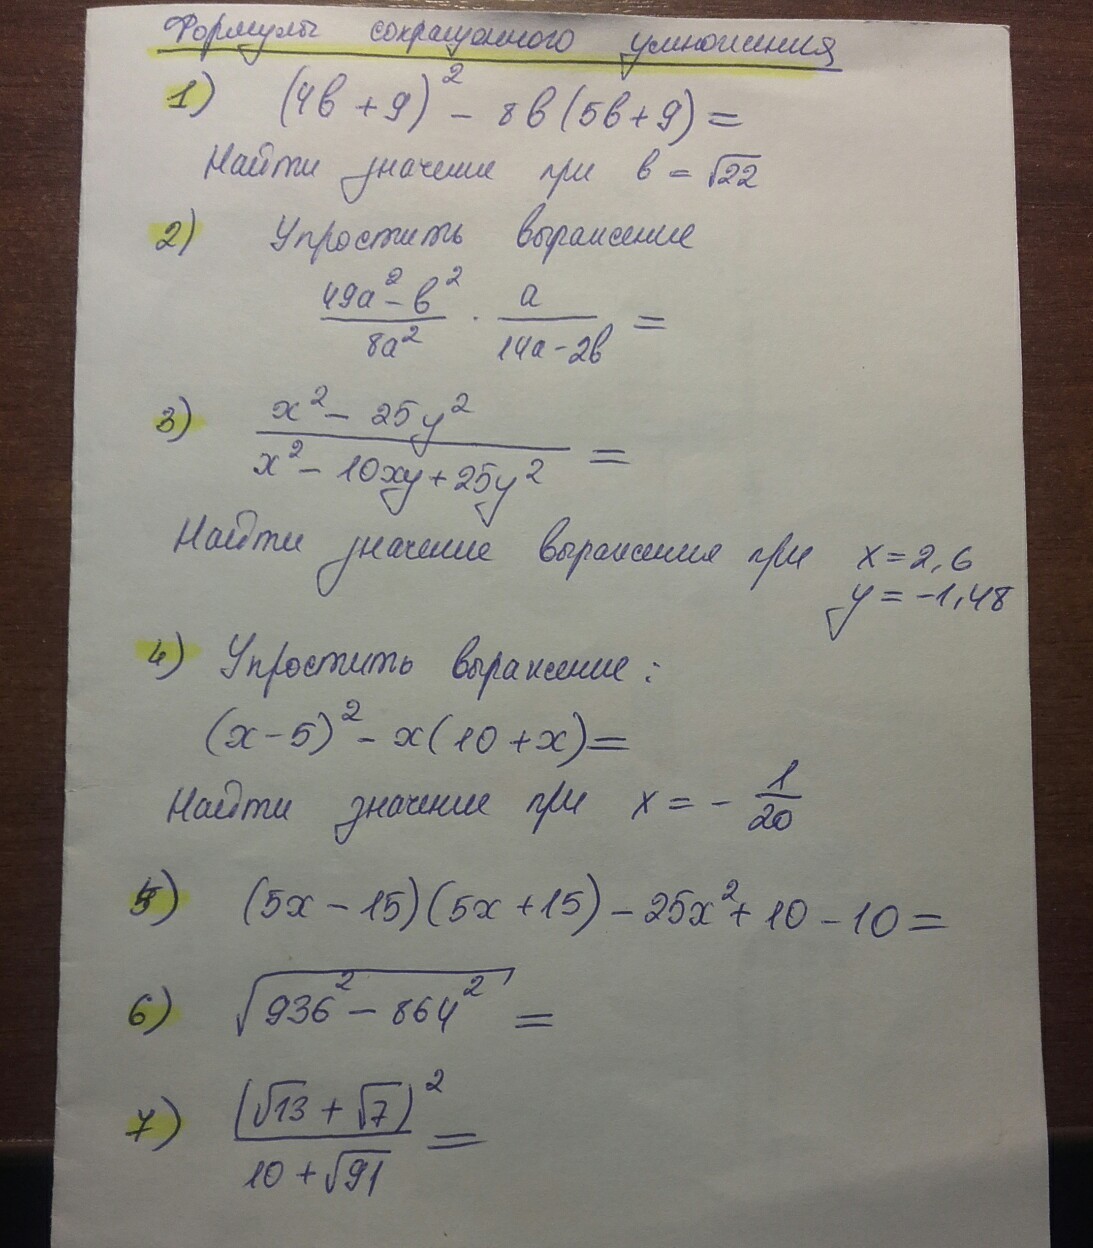 Формулы сокращенного умножения
1) (4в + 9)² - 8в(5в + 9) =
Найти значение при в = √22
2) Упростить выражение
(49а² - в²)/(8а²) · а/(14а - 2в) =
3) (x² - 25y²)/(x² - 10xy + 25y²) =
Найти значение выражения при x = 2,6
y = -1,48
4) Упростить выражение:
(x - 5)² - x(10 + x) =
Найти значение при x = - 1/20
5) (5x - 15)(5x + 15) - 25x² + 10 - 10 =
6) √(936² - 864²) =
7) (√13 + √7)²/(10 + √91) =